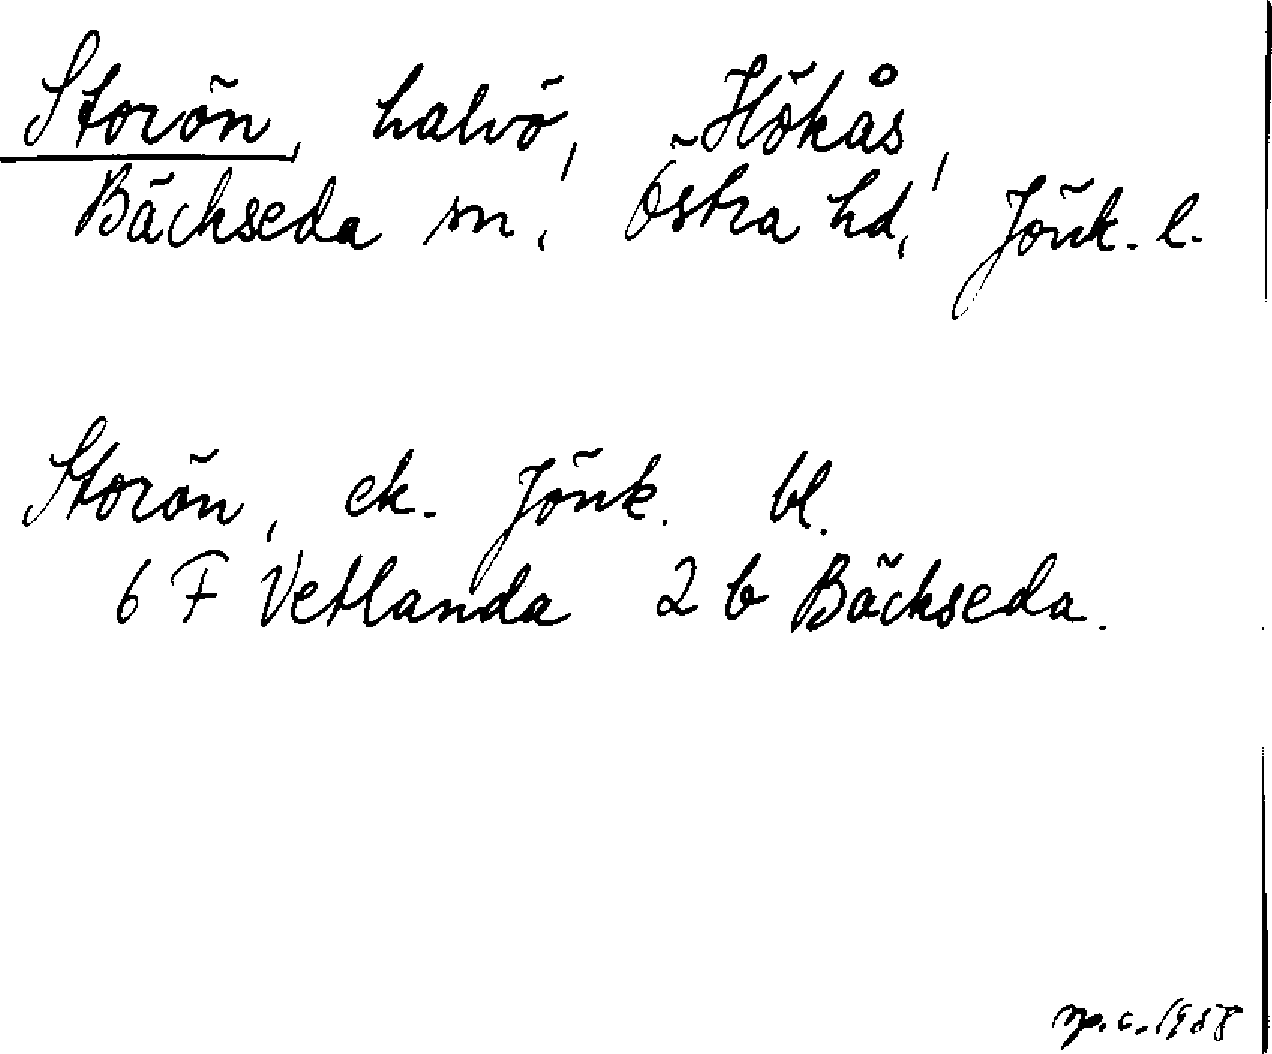 Storön, halvö, Hökås,
Bäckseda sn, Östra hd, Jönk. l.
Storön, ek. Jönk. bl.
6 F Vetlanda 2 b Bäckseda.